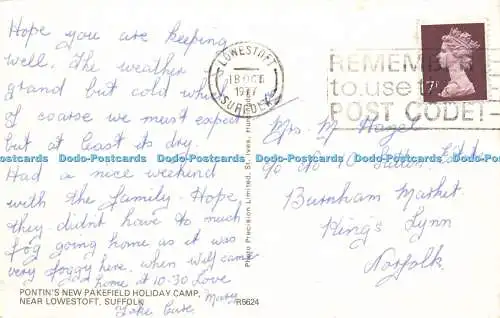 Hope you are keeping
well. The weather
grand but cold which
of coarse we must expect
but at least its dry.
Had a nice weekend
with the family. Hope
they didn't have to much
fog going home as it was
very foggy here. when will came
home at 10-30 Love
Mary
Take Care
PONTIN'S NEW PAKEFIELD HOLIDAY CAMP,
NEAR LOWESTOFT, SUFFOLK
R5624
Photo Precision Limited, St. Ives,
LOWESTOFT
18 OC
1977
SUFFOLK
REMEMBER
to use the
POST CODE!
7P
Mrs. M Hazel
Sutton
Burnham Market
King's Lynn
Norfolk.
Dodo-Postcards Dodo-Postcards Dodo-Postcards Dodo-Postcards Dodo-Postcards Dodo-Postcards